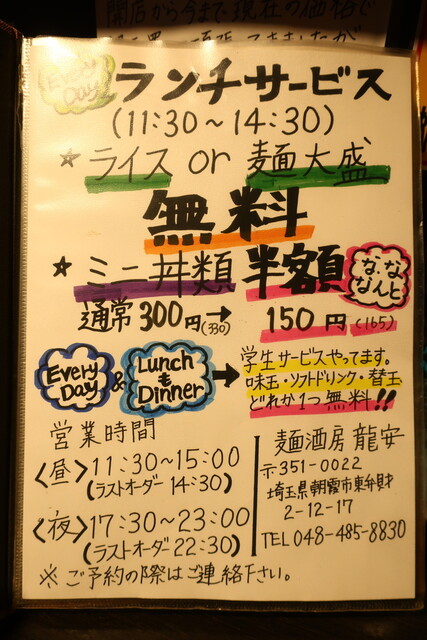 開店から今まで現在の価格で
Every Day
ランチサービス
(11:30～14:30)
★ライス or 麺大盛
無料
★ミニ丼類 半額
な、な なんと
通常300円(330)→150円(165)
Every Day & Lunch も Dinner →
学生サービスやってます。
味玉・ソフトドリンク・替玉、
どれか1つ無料!!
営業時間
〈昼〉11:30～15:00
(ラストオーダー 14:30)
〈夜〉17:30～23:00
(ラストオーダー 22:30)
※ご予約の際はご連絡下さい。
麺酒房 龍安
〒351-0022
埼玉県朝霞市東弁財
2-12-17
TEL 048-485-8830